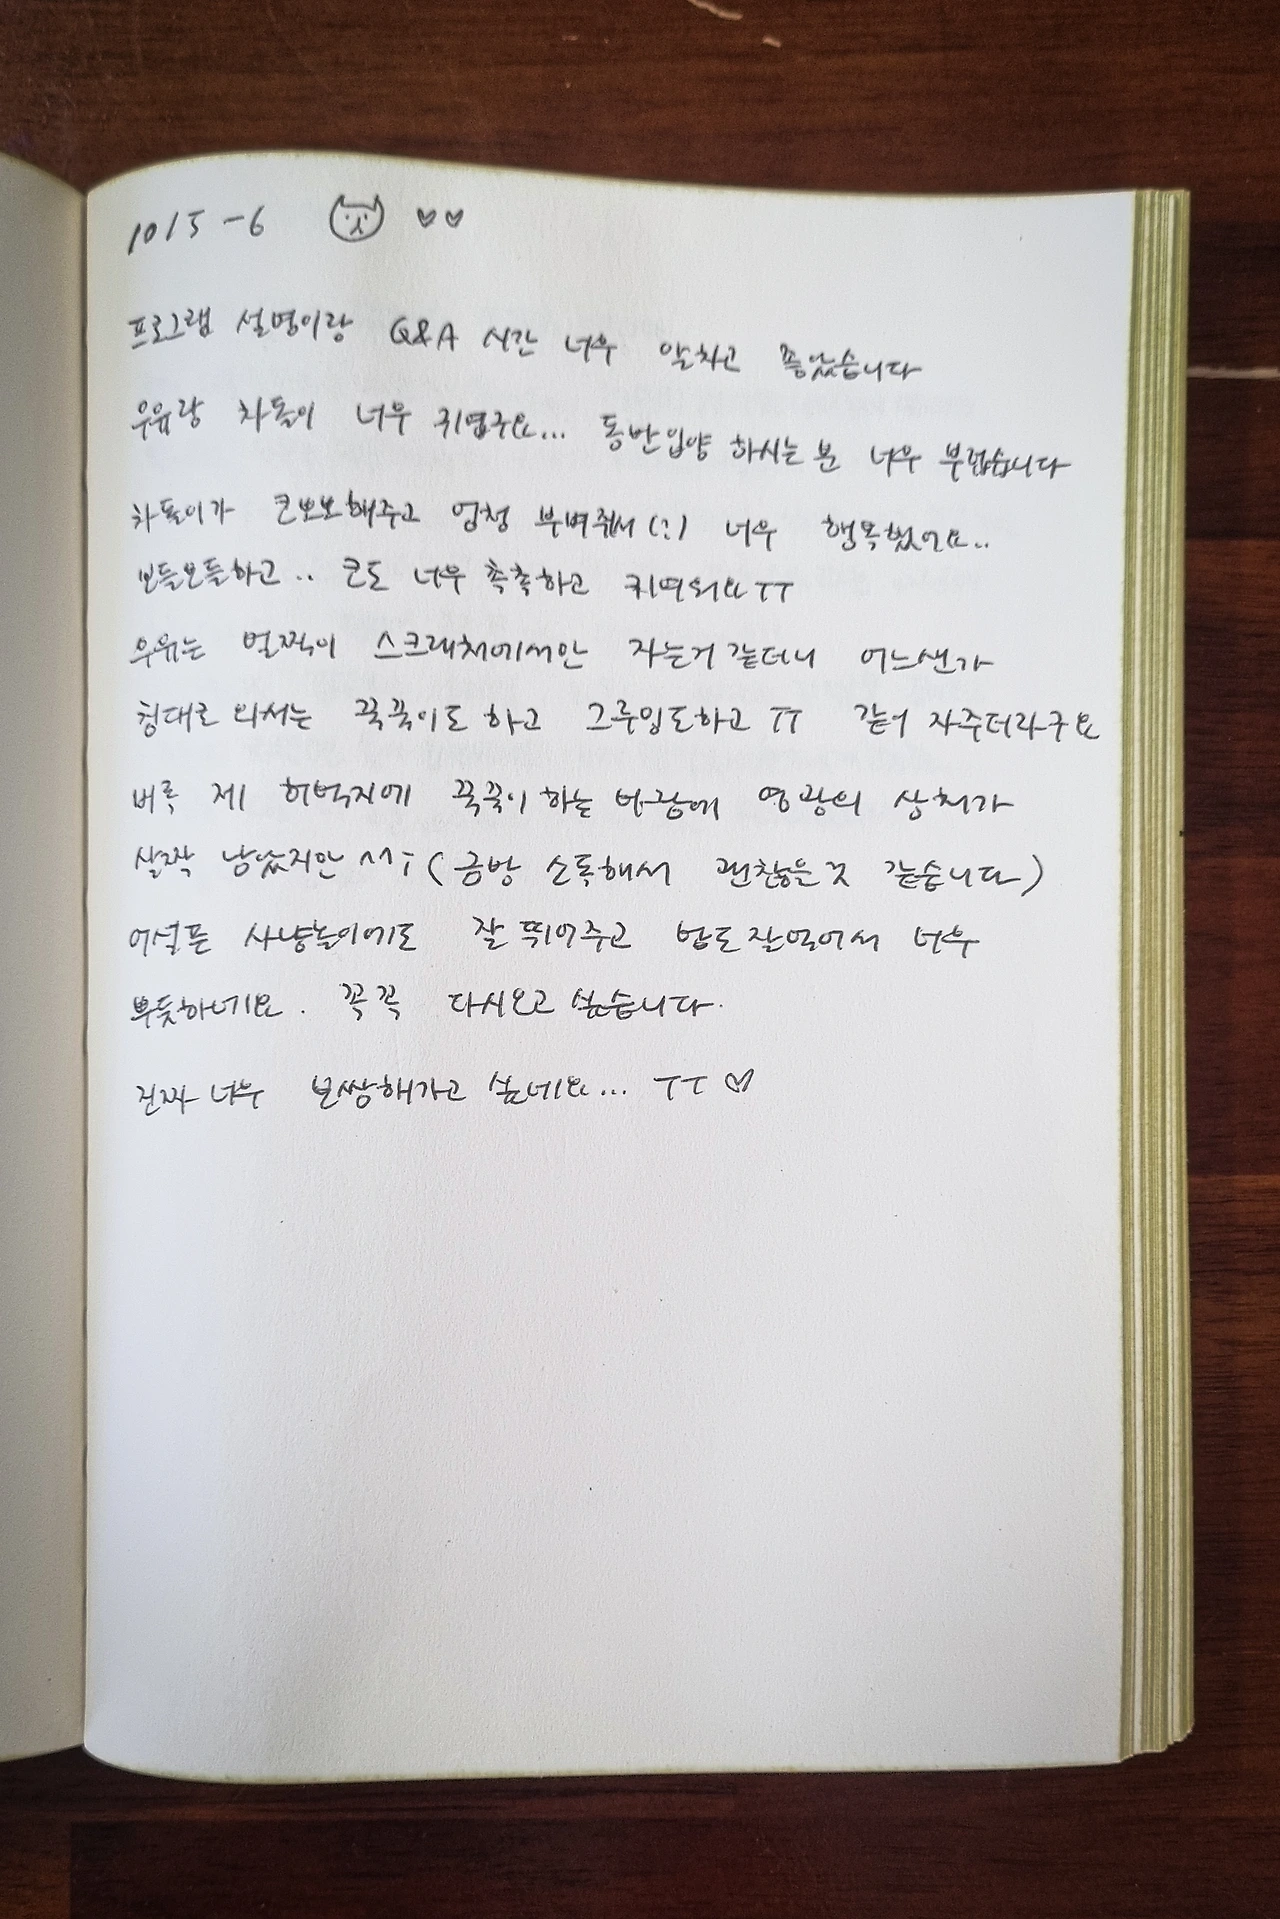 10/5-6 ♡♡
프로그램 설명이랑 Q&A 시간 너무 알차고 좋았습니다
우유랑 차돌이 너무 귀엽구요... 동반입양 하시는 분 너무 부럽습니다
차돌이가 코뽀뽀해주고 엄청 부벼줘서(?) 너무 행복했어요..
보들보들하고.. 코도 너무 촉촉하고 귀여워요ㅠㅠ
우유는 멀찍이 스크래처에서만 자는거 같더니 어느샌가
침대로 와서는 꾹꾹이도 하고 그루밍도하고 ㅠㅠ 같이 자주더라구요
비록 제 허벅지에 꾹꾹이 하는 바람에 영광의 상처가
살짝 남았지만 ^^; (금방 소독해서 괜찮은것 같습니다)
어설픈 사냥놀이에도 잘 뛰어주고 밥도 잘먹어서 너무
뿌듯하네요. 꼭꼭 다시오고 싶습니다.
진짜 너무 보쌈해가고 싶네요... ㅠㅠ ♡